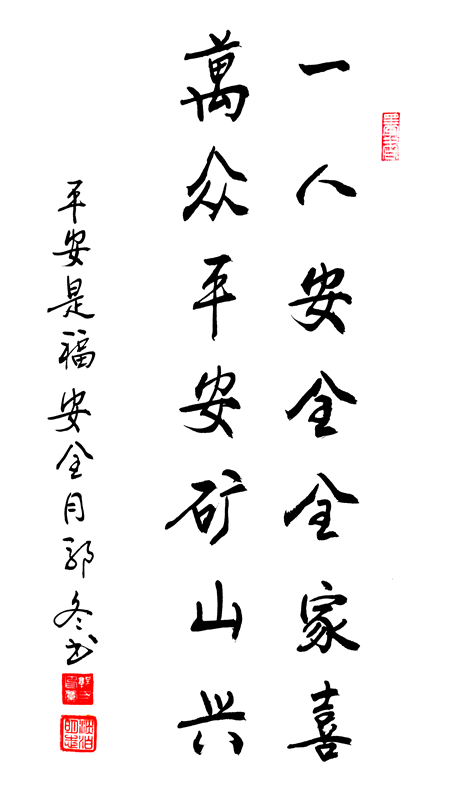 一人安全全家喜
萬众平安矿山兴
平安是福安全月郭冬书